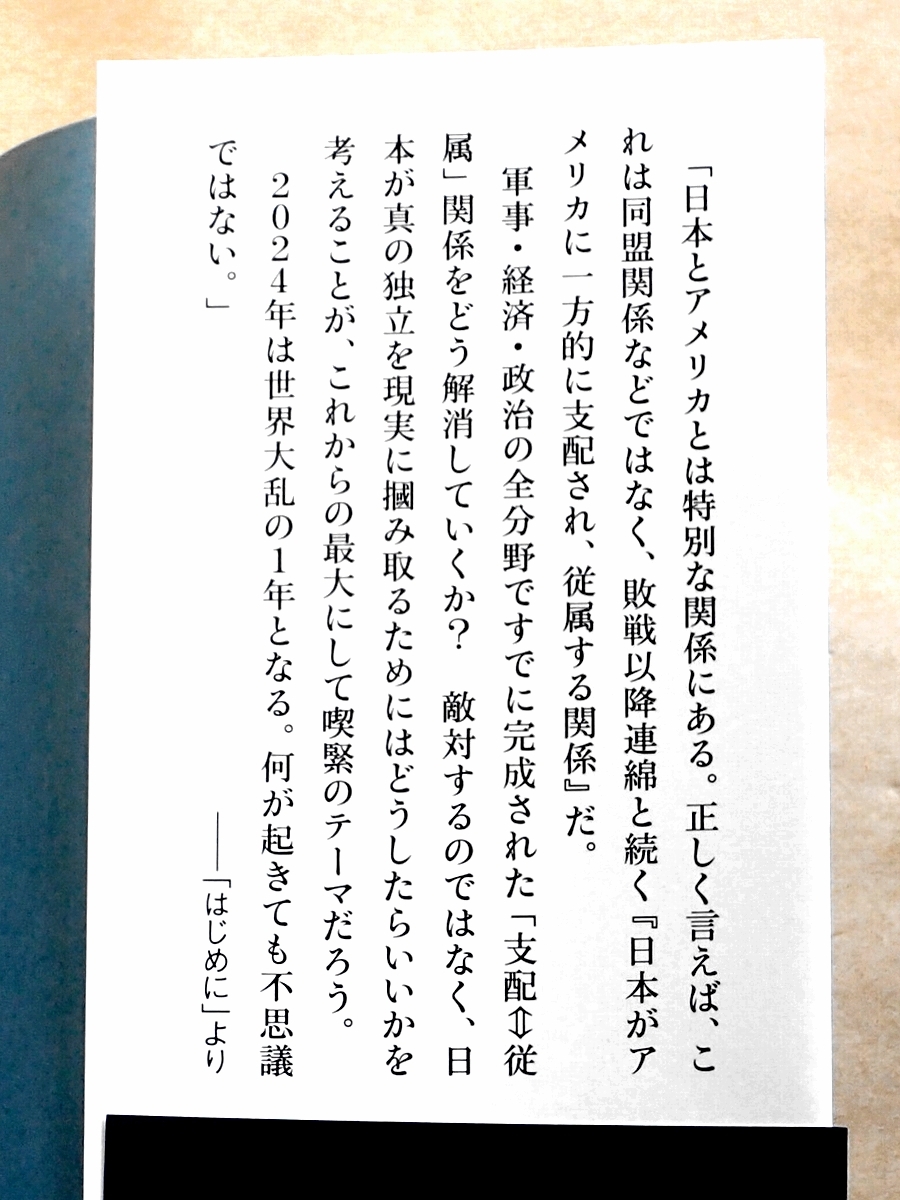 「日本とアメリカとは特別な関係にある。正しく言えば、こ
れは同盟関係などではなく、敗戦以降連綿と続く『日本がア
メリカに一方的に支配され、従属する関係』だ。
軍事・経済・政治の全分野ですでに完成された「支配⇕従
属」関係をどう解消していくか？　敵対するのではなく、日
本が真の独立を現実に摑み取るためにはどうしたらいいかを
考えることが、これからの最大にして喫緊のテーマだろう。
2024年は世界大乱の1年となる。何が起きても不思議
ではない。」
――「はじめに」より